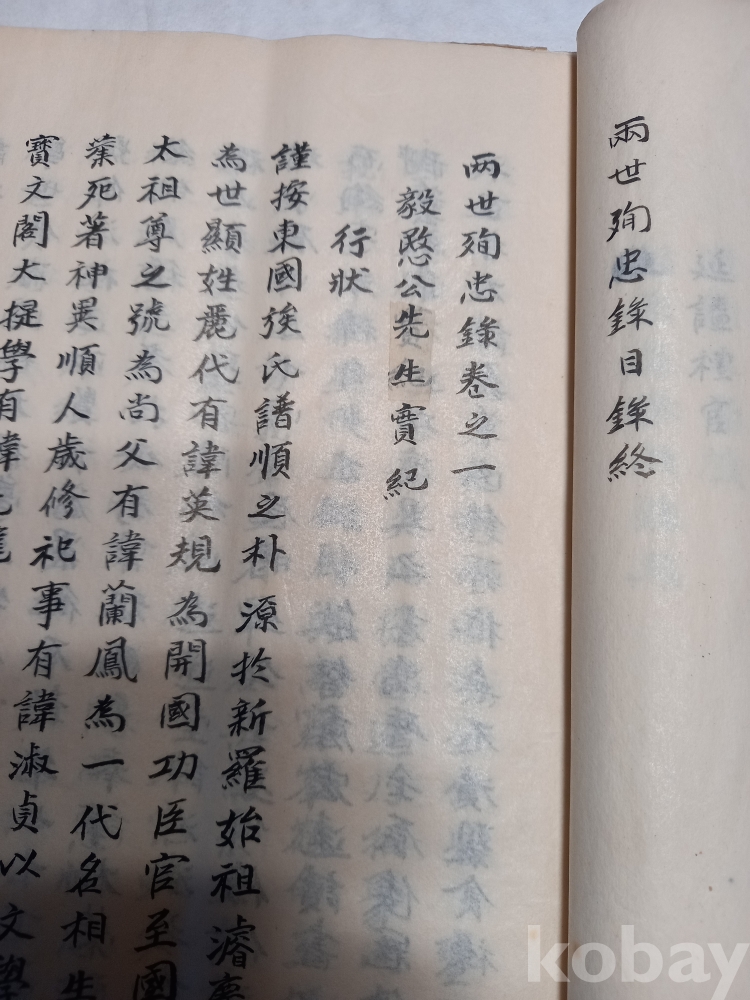 兩世殉忠錄目錄終
兩世殉忠錄卷之一
毅愍公先生實紀
行狀
謹按東國族氏譜順之朴源於新羅始祖濬裏
為世顯姓麗代有諱英規為開國功臣官至國
太祖尊之號為尚父有諱蘭鳳為一代名相生
葉死著神異順人歲修祀事有諱淑貞以文學
寶文閣大提學有諱元龍
kobay